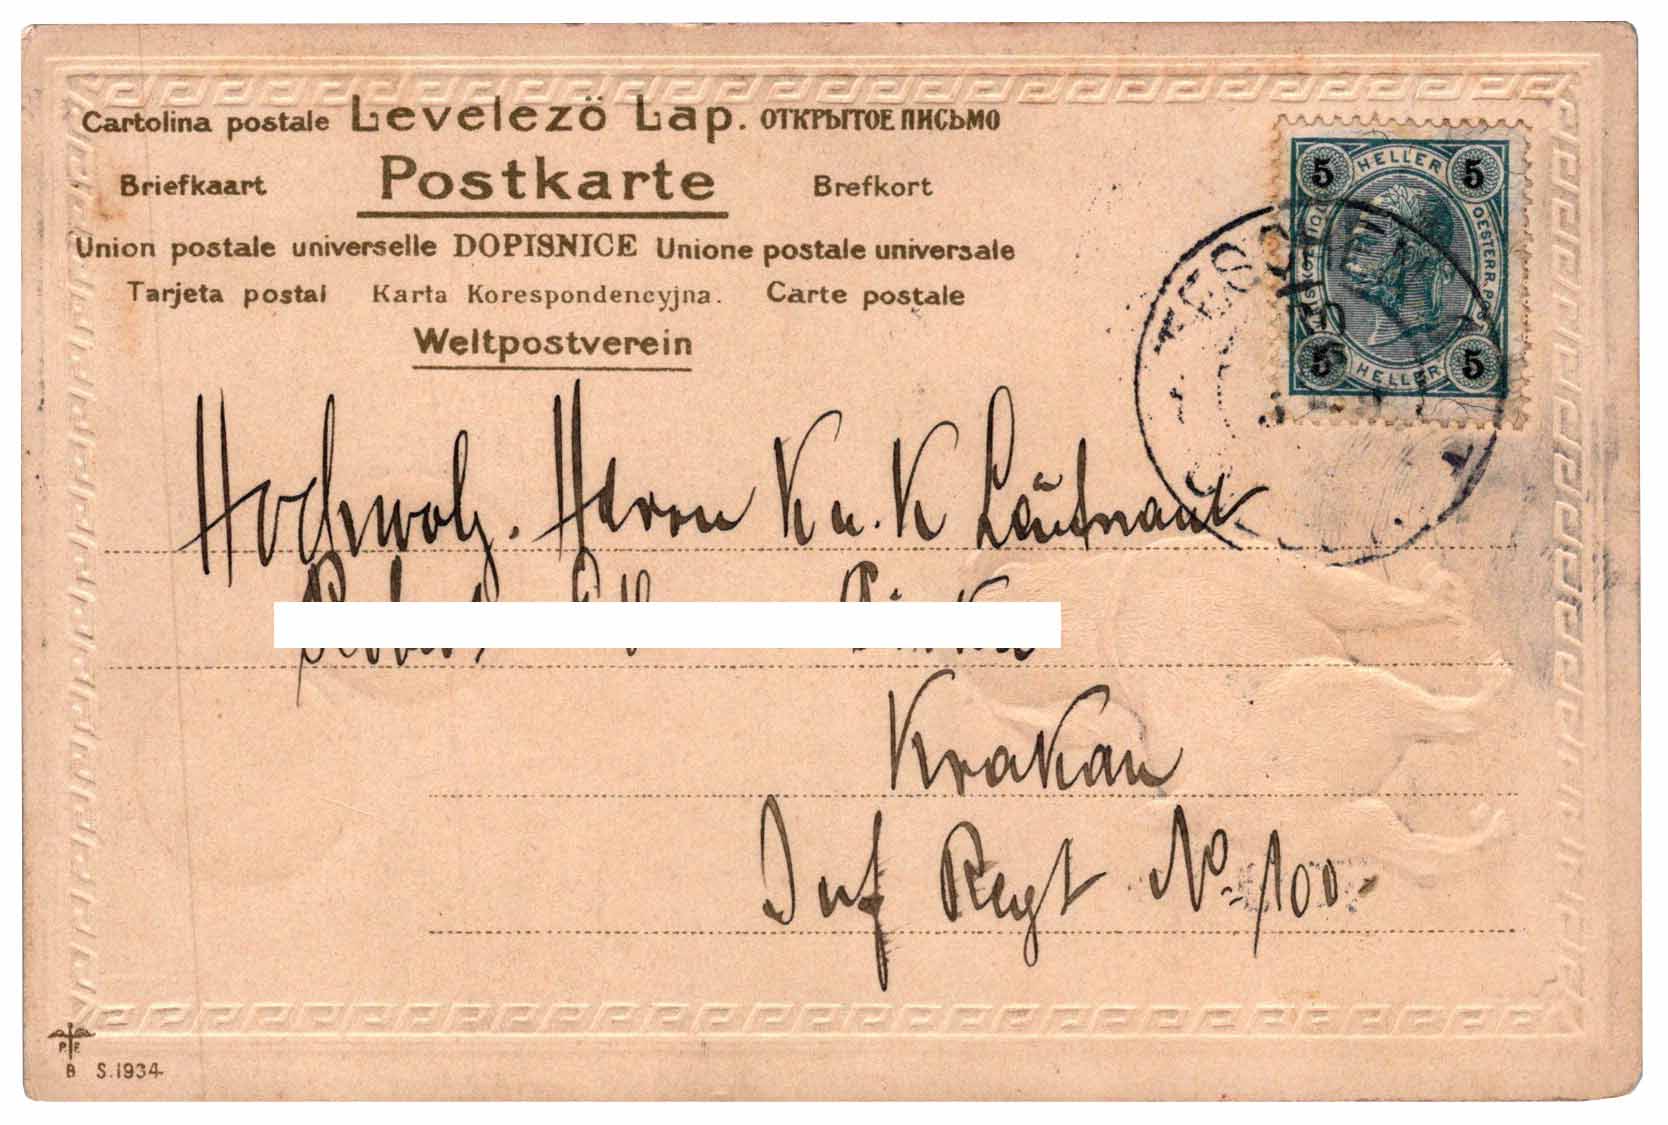 Cartolina postale Levelezö Lap. ОТКРЫТОЕ ПИСЬМО
Briefkaart Postkarte Brefkort
Union postale universelle DOPISNICE Unione postale universale
Tarjeta postal Karta Korespondencyjna. Carte postale
Weltpostverein
5 HELLER 5
OESTERR. PO
5 HELLER 5
TESC
Hochwolg. Herrn K u. K Leutnant
Krakau
Inf Regt No. 100.
P. F.
B S. 1934